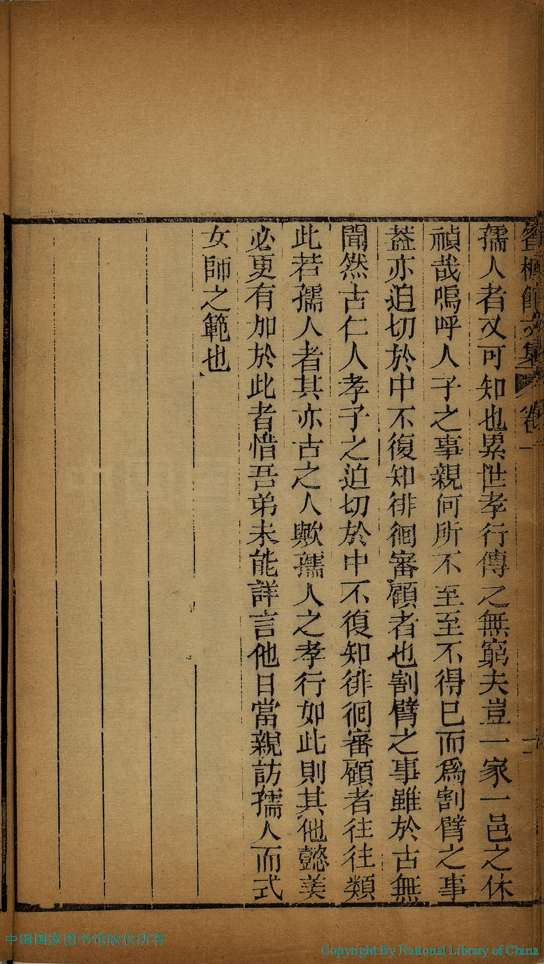 孺人者又可知也累世孝行傳之無窮夫豈一家一邑之休
禎哉嗚呼人子之事親何所不至至不得已而爲割臂之事
葢亦迫切於中不復知徘徊審顧者也割臂之事雖於古無
聞然古仁人孝子之迫切於中不復知徘徊審顧者往往類
此若孺人者其亦古之人歟孺人之孝行如此則其他懿美
必更有加於此者惜吾弟未能詳言他日當親訪孺人而式
女師之範也
中国国家图书馆版权所有
Copyright By National Library of China